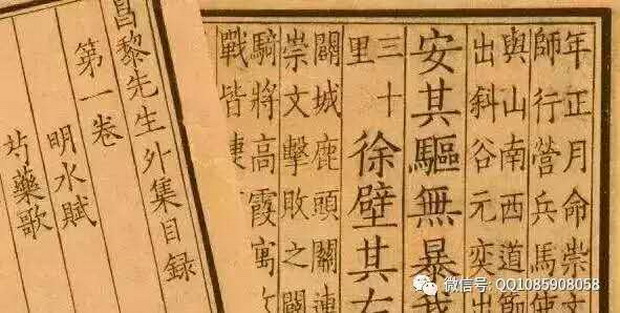 年正月命崇文
師行營兵馬使
與山南西道節
出斜谷元奕出
安其驅無暴我
三十
里
徐壁其右
闢城鹿頭關連
崇文擊敗之闢
騎將高霞寓
戰皆
昌黎先生外集目錄
第一卷
明水賦
芍藥歌
微信号: QQ1085908058